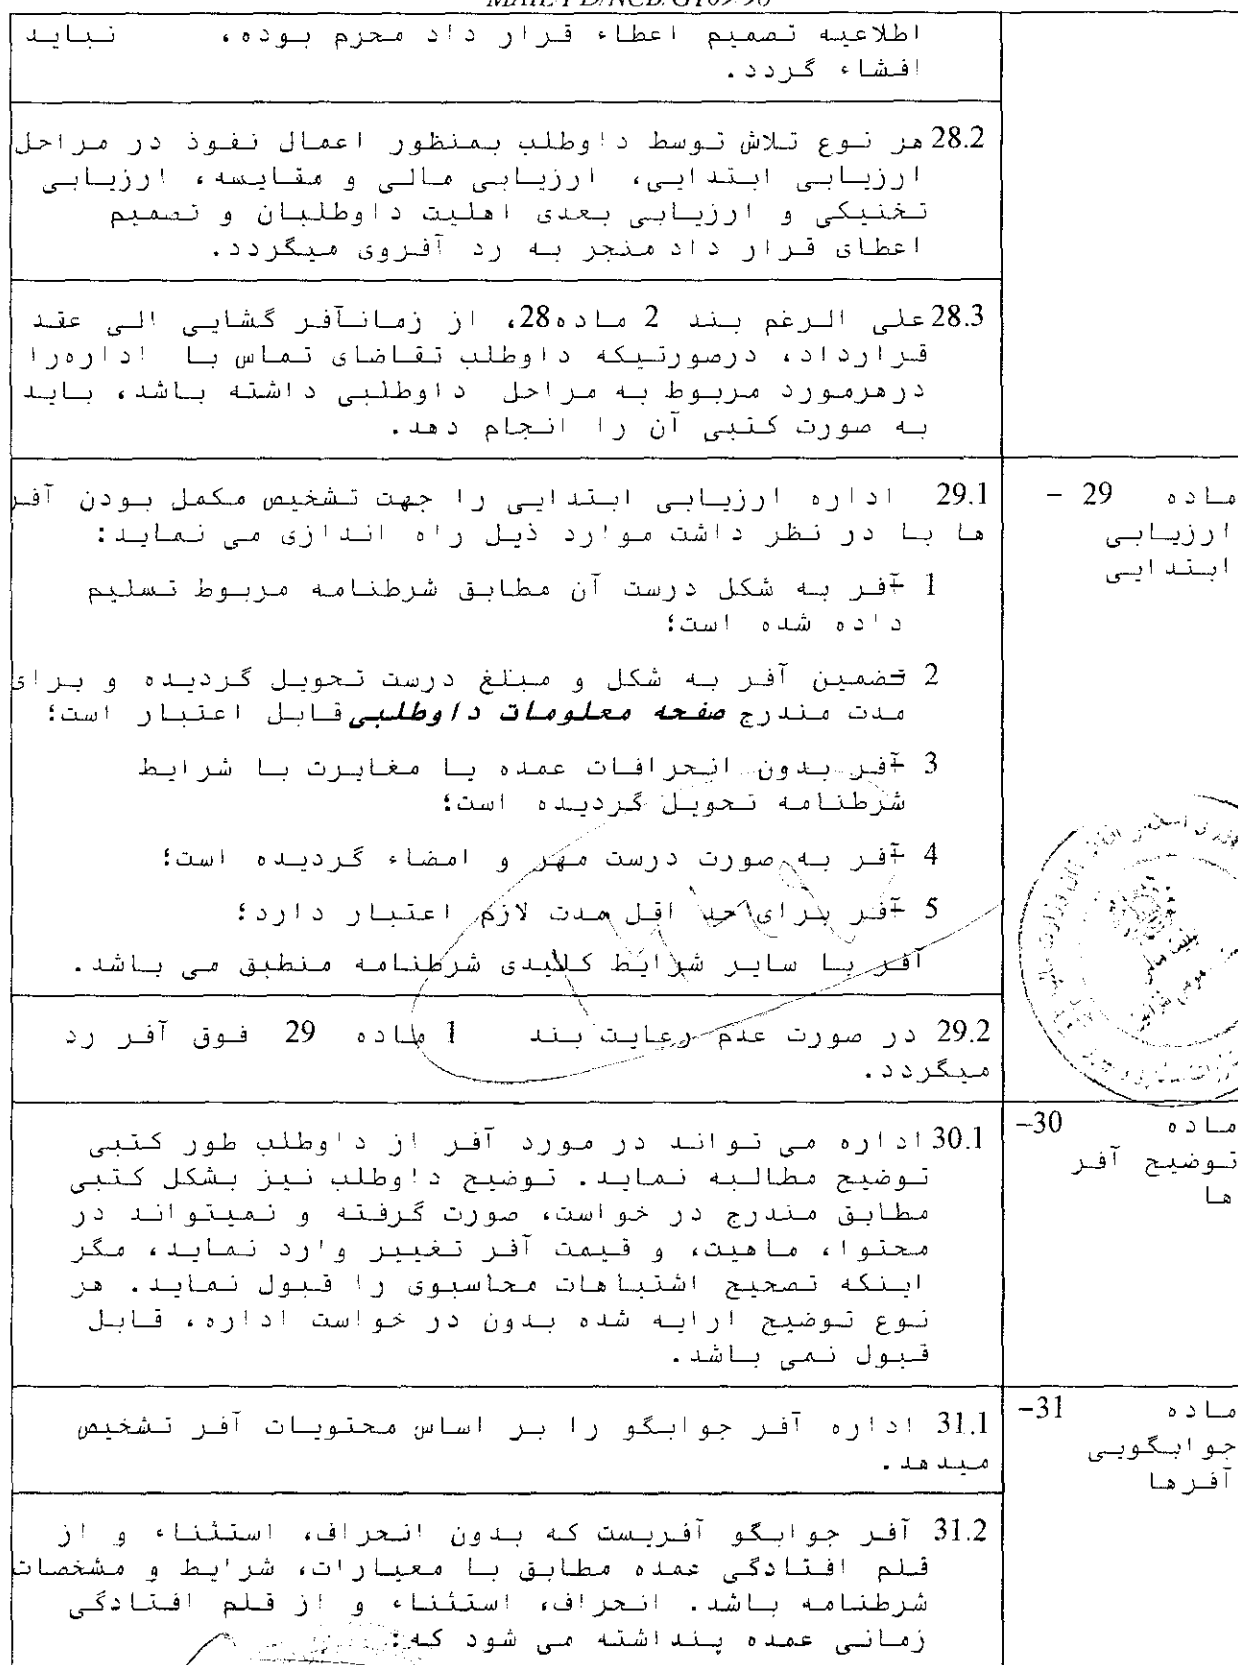 MAIL/PD/NCB/G109/96
اطلاعیه تصمیم اعطاء قرار داد محرم بوده، نباید
افشاء گردد.
28.2 هر نوع تلاش توسط داوطلب بمنظور اعمال نفوذ در مراحل
ارزیابی ابتدایی، ارزیابی مالی و مقایسه، ارزیابی
تخنیکی و ارزیابی بعدی اهلیت داوطلبان و تصمیم
اعطای قرار داد منجر به رد آفروی میگردد.
28.3 علی الرغم بند 2 ماده 28، از زمانآفر گشایی الی عقد
قرارداد، درصورتیکه داوطلب تقاضای تماس با ادارهرا
درهرمورد مربوط به مراحل داوطلبی داشته باشد، باید
به صورت کتبی آن را انجام دهد.
ماده 29 –
ارزیابی
ابتدایی
29.1 اداره ارزیابی ابتدایی را جهت تشخیص مکمل بودن آفر
ها با در نظر داشت موارد ذیل راه اندازی می نماید:
1 آفر به شکل درست آن مطابق شرطنامه مربوط تسلیم
داده شده است؛
2 تضمین آفر به شکل و مبلغ درست تحویل گردیده و برای
مدت مندرج صفحه معلومات داوطلبی قابل اعتبار است؛
3 آفر بدون انحرافات عمده یا مغایرت با شرایط
شرطنامه تحویل گردیده است؛
4 آفر به صورت درست مهر و امضاء گردیده است؛
5 آفر برای حد اقل مدت لازم اعتبار دارد؛
آفر با سایر شرایط کلیدی شرطنامه منطبق می باشد.
29.2 در صورت عدم رعایت بند 1 ماده 29 فوق آفر رد
میگردد.
ماده 30–
توضیح آفر
ها
30.1 اداره می تواند در مورد آفر از داوطلب طور کتبی
توضیح مطالبه نماید. توضیح داوطلب نیز بشکل کتبی
مطابق مندرج در خواست، صورت گرفته و نمیتواند در
محتوا، ماهیت، و قیمت آفر تغییر وارد نماید، مگر
اینکه تصحیح اشتباهات محاسبوی را قبول نماید. هر
نوع توضیح ارایه شده بدون در خواست اداره، قابل
قبول نمی باشد.
ماده 31–
جوابگویی
آفرها
31.1 اداره آفر جوابگو را بر اساس محتویات آفر تشخیص
میدهد.
31.2 آفر جوابگو آفریست که بدون انحراف، استثناء و از
قلم افتادگی عمده مطابق با معیارات، شرایط و مشخصات
شرطنامه باشد. انحراف، استثناء و از قلم افتادگی
زمانی عمده پنداشته می شود که: